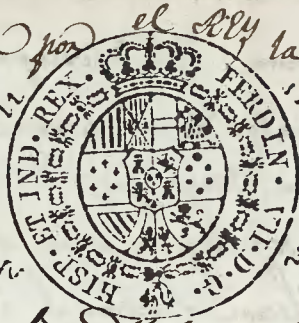 por el REY la
FERDIN. VII. D. G. HISP. ET IND. REX.